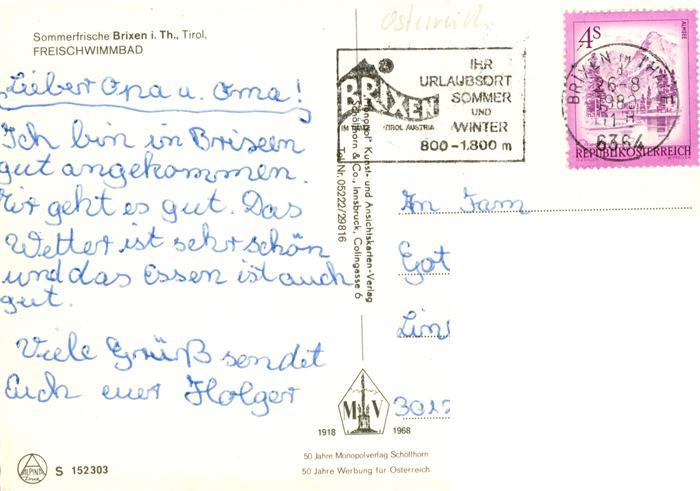 Österreich
Sommerfrische Brixen i. Th., Tirol,
FREISCHWIMMBAD
Lieber Opa u. Oma!
Ich bin in Brixen
gut angekommen.
Mir geht es gut. Das
Wetter ist sehr schön
und das Essen ist auch
gut.
Viele Grüß sendet
Euch euer Holger
ALPINA
Druck
S 152303
BRIXEN
IM THALE TIROL AUSTRIA
IHR
URLAUBSORT
SOMMER
UND
WINTER
800-1.800 m
4S
ALMSEE
BRIXEN IM THALE
6364
REPUBLIK ÖSTERREICH
"Monopol" Kunst- und Ansichtskarten-Verlag
Schöllhorn & Co., Innsbruck, Colingasse 6
Tel Nr. 05222/29816
An Fam
Got
Lin
MV
1918 1968
50 Jahre Monopolverlag Schöllhorn
50 Jahre Werbung für Österreich